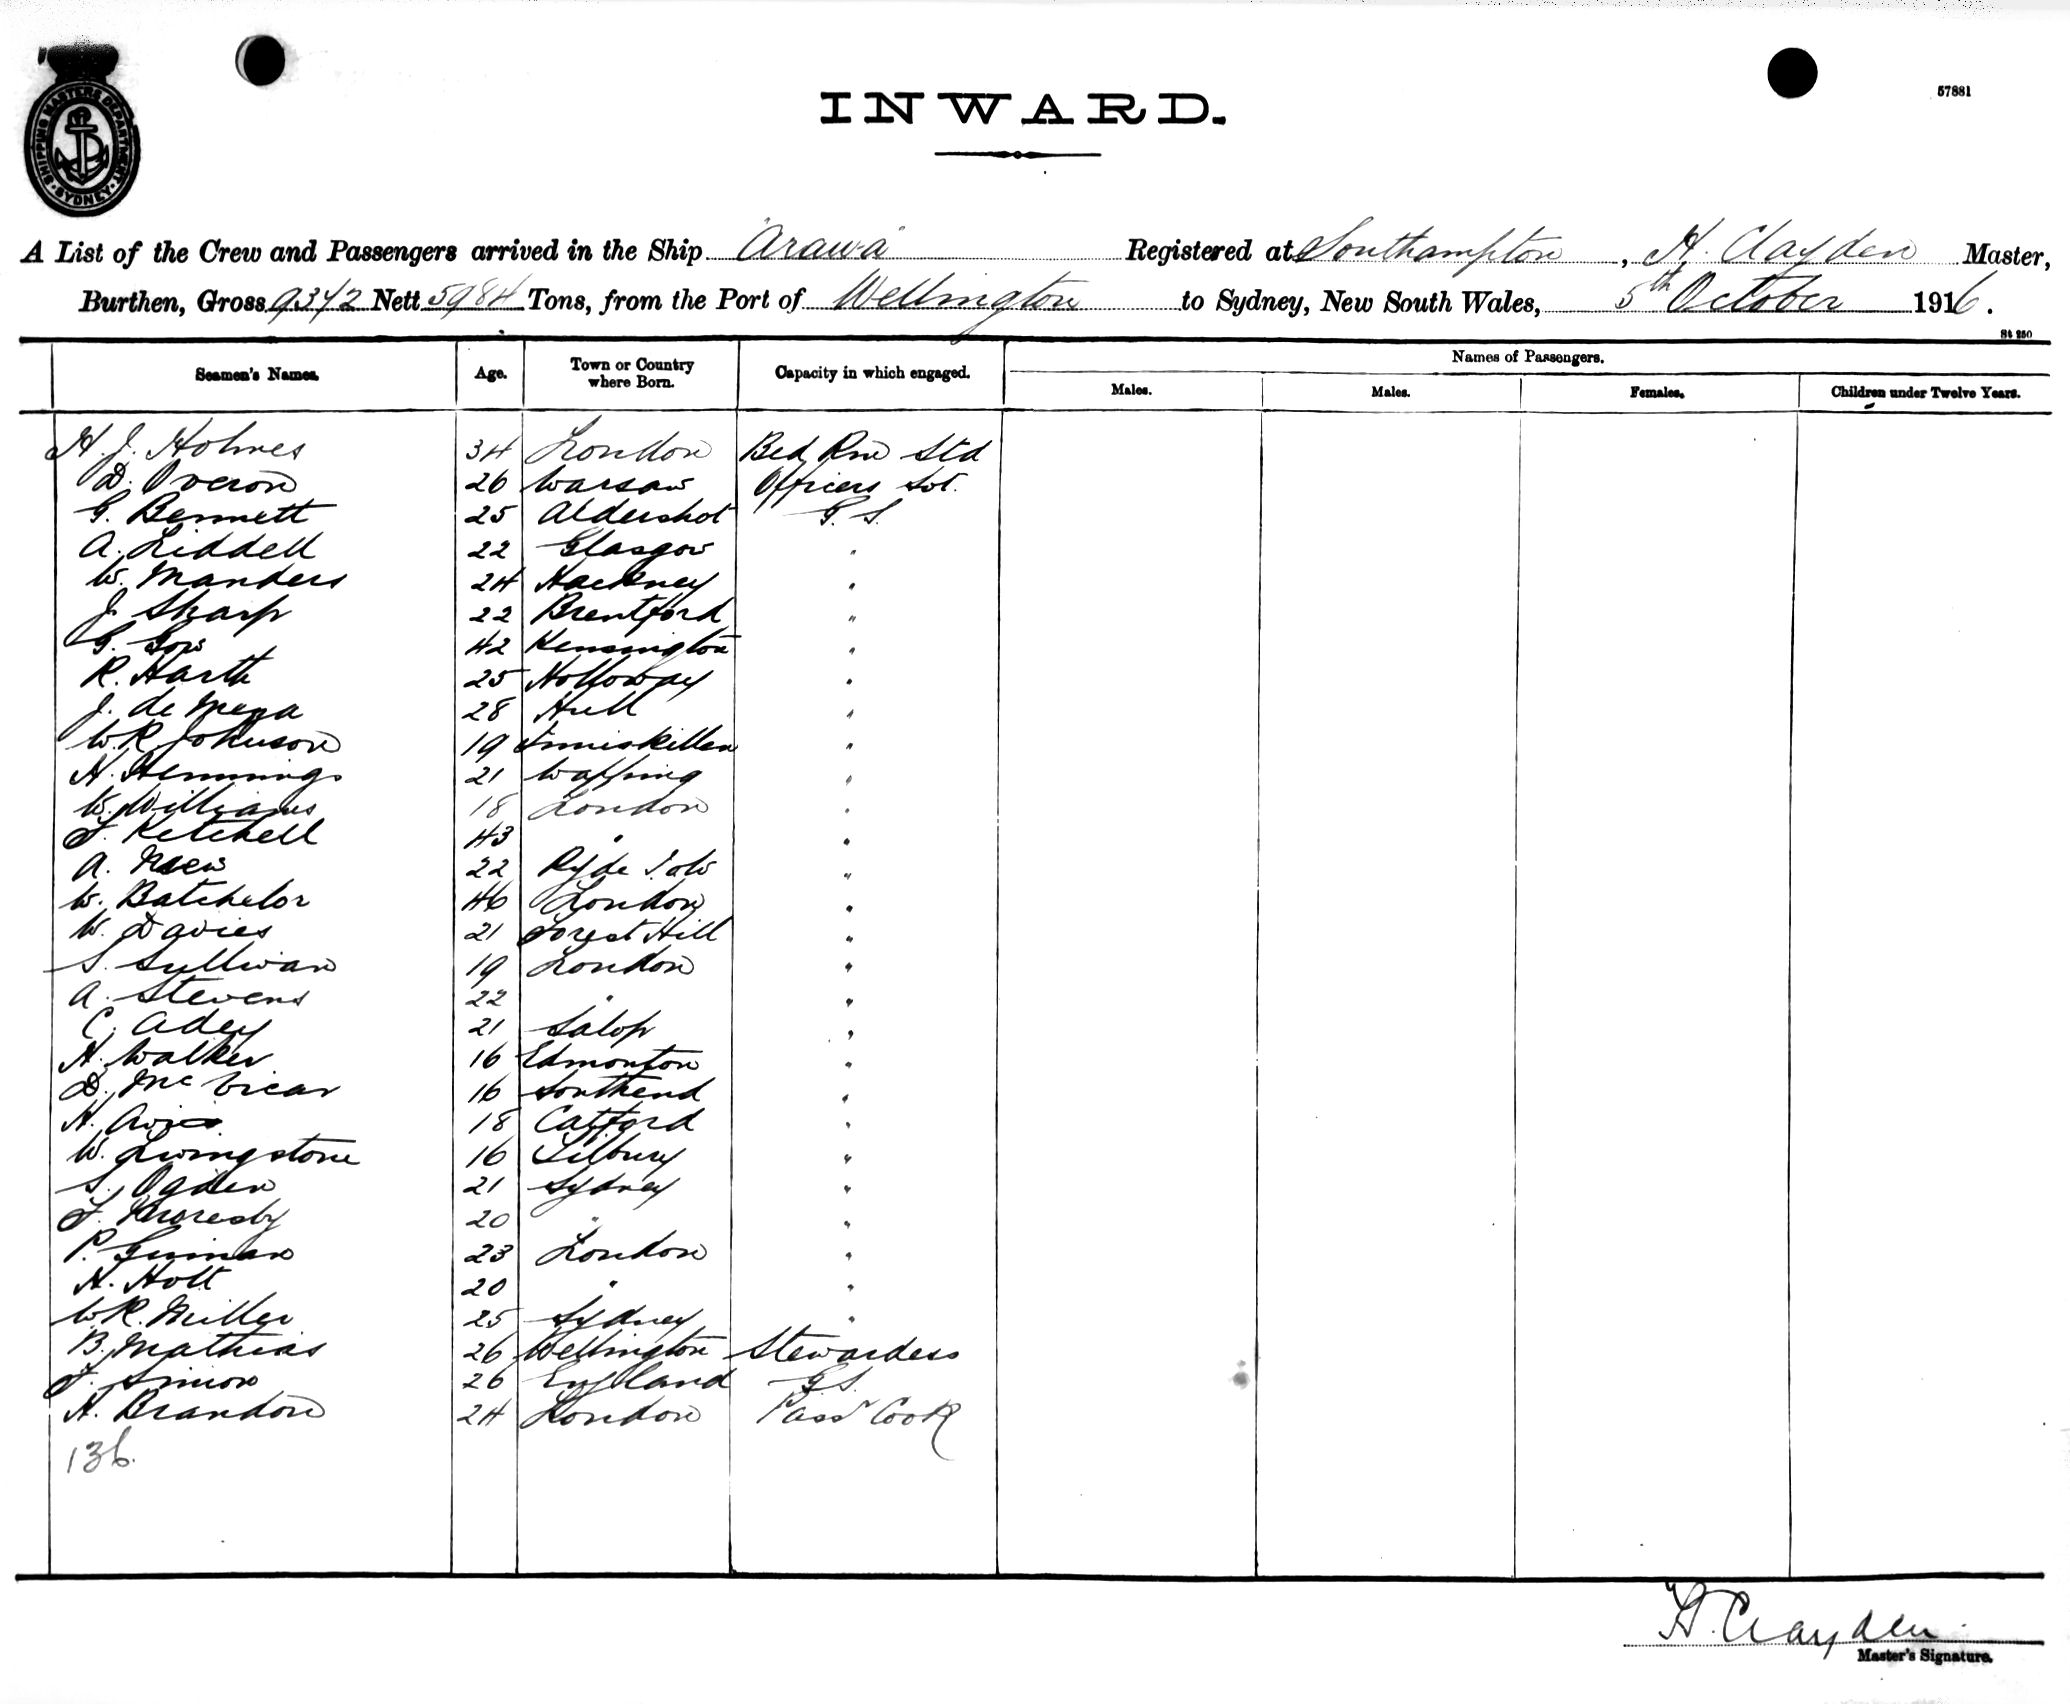 SHIPPING MASTERS DEPARTMENT
SYDNEY
INWARD.
57881
A List of the Crew and Passengers arrived in the Ship "Arawa" Registered at Southampton, H. Clayden Master,
Burthen, Gross 9342 Nett 5984 Tons, from the Port of Wellington to Sydney, New South Wales, 5th October 1916.
St 250
Seamen's Names. Age. Town or Country where Born. Capacity in which engaged. Names of Passengers.
Males. Males. Females. Children under Twelve Years.
H. J. Holmes 34 London Bed Rm Std
D. Overon 26 Warsaw Officers Svt.
G. Bennett 25 Aldershot G. S.
A. Liddell 22 Glasgow "
W. Manders 24 Hackney "
J. Sharp 22 Brentford "
G. Gow 42 Kensington "
R. Harth 25 Holloway "
J. de Meza 28 Hull "
W. R. Johnson 19 Inniskillen "
H. Hemmings 21 Wapping "
W. Williams 18 London "
F. Ketchell 43 " "
A. 22 Ryde I.o.W "
W. Batchelor 46 London "
W. Davies 21 Forest Hill "
S. Sullivan 19 London "
A. Stevens 22 " "
C. Adey 21 Salop "
H. Walker 16 Edmonton "
D. McVicar 16 Southend "
H. Avis 18 Catford "
W. Livingstone 16 Tilbury "
S. Ogden 21 Sydney "
F. Moresby 20 " "
P. Guinan 23 London "
H. Holt 20 " "
W. R. Miller 25 Sydney "
B. Mathias 26 Wellington Stewardess
F. Simon 26 England G.S.
H. Brandon 24 London Passr Cook
136.
H. Clayden
Master's Signature.